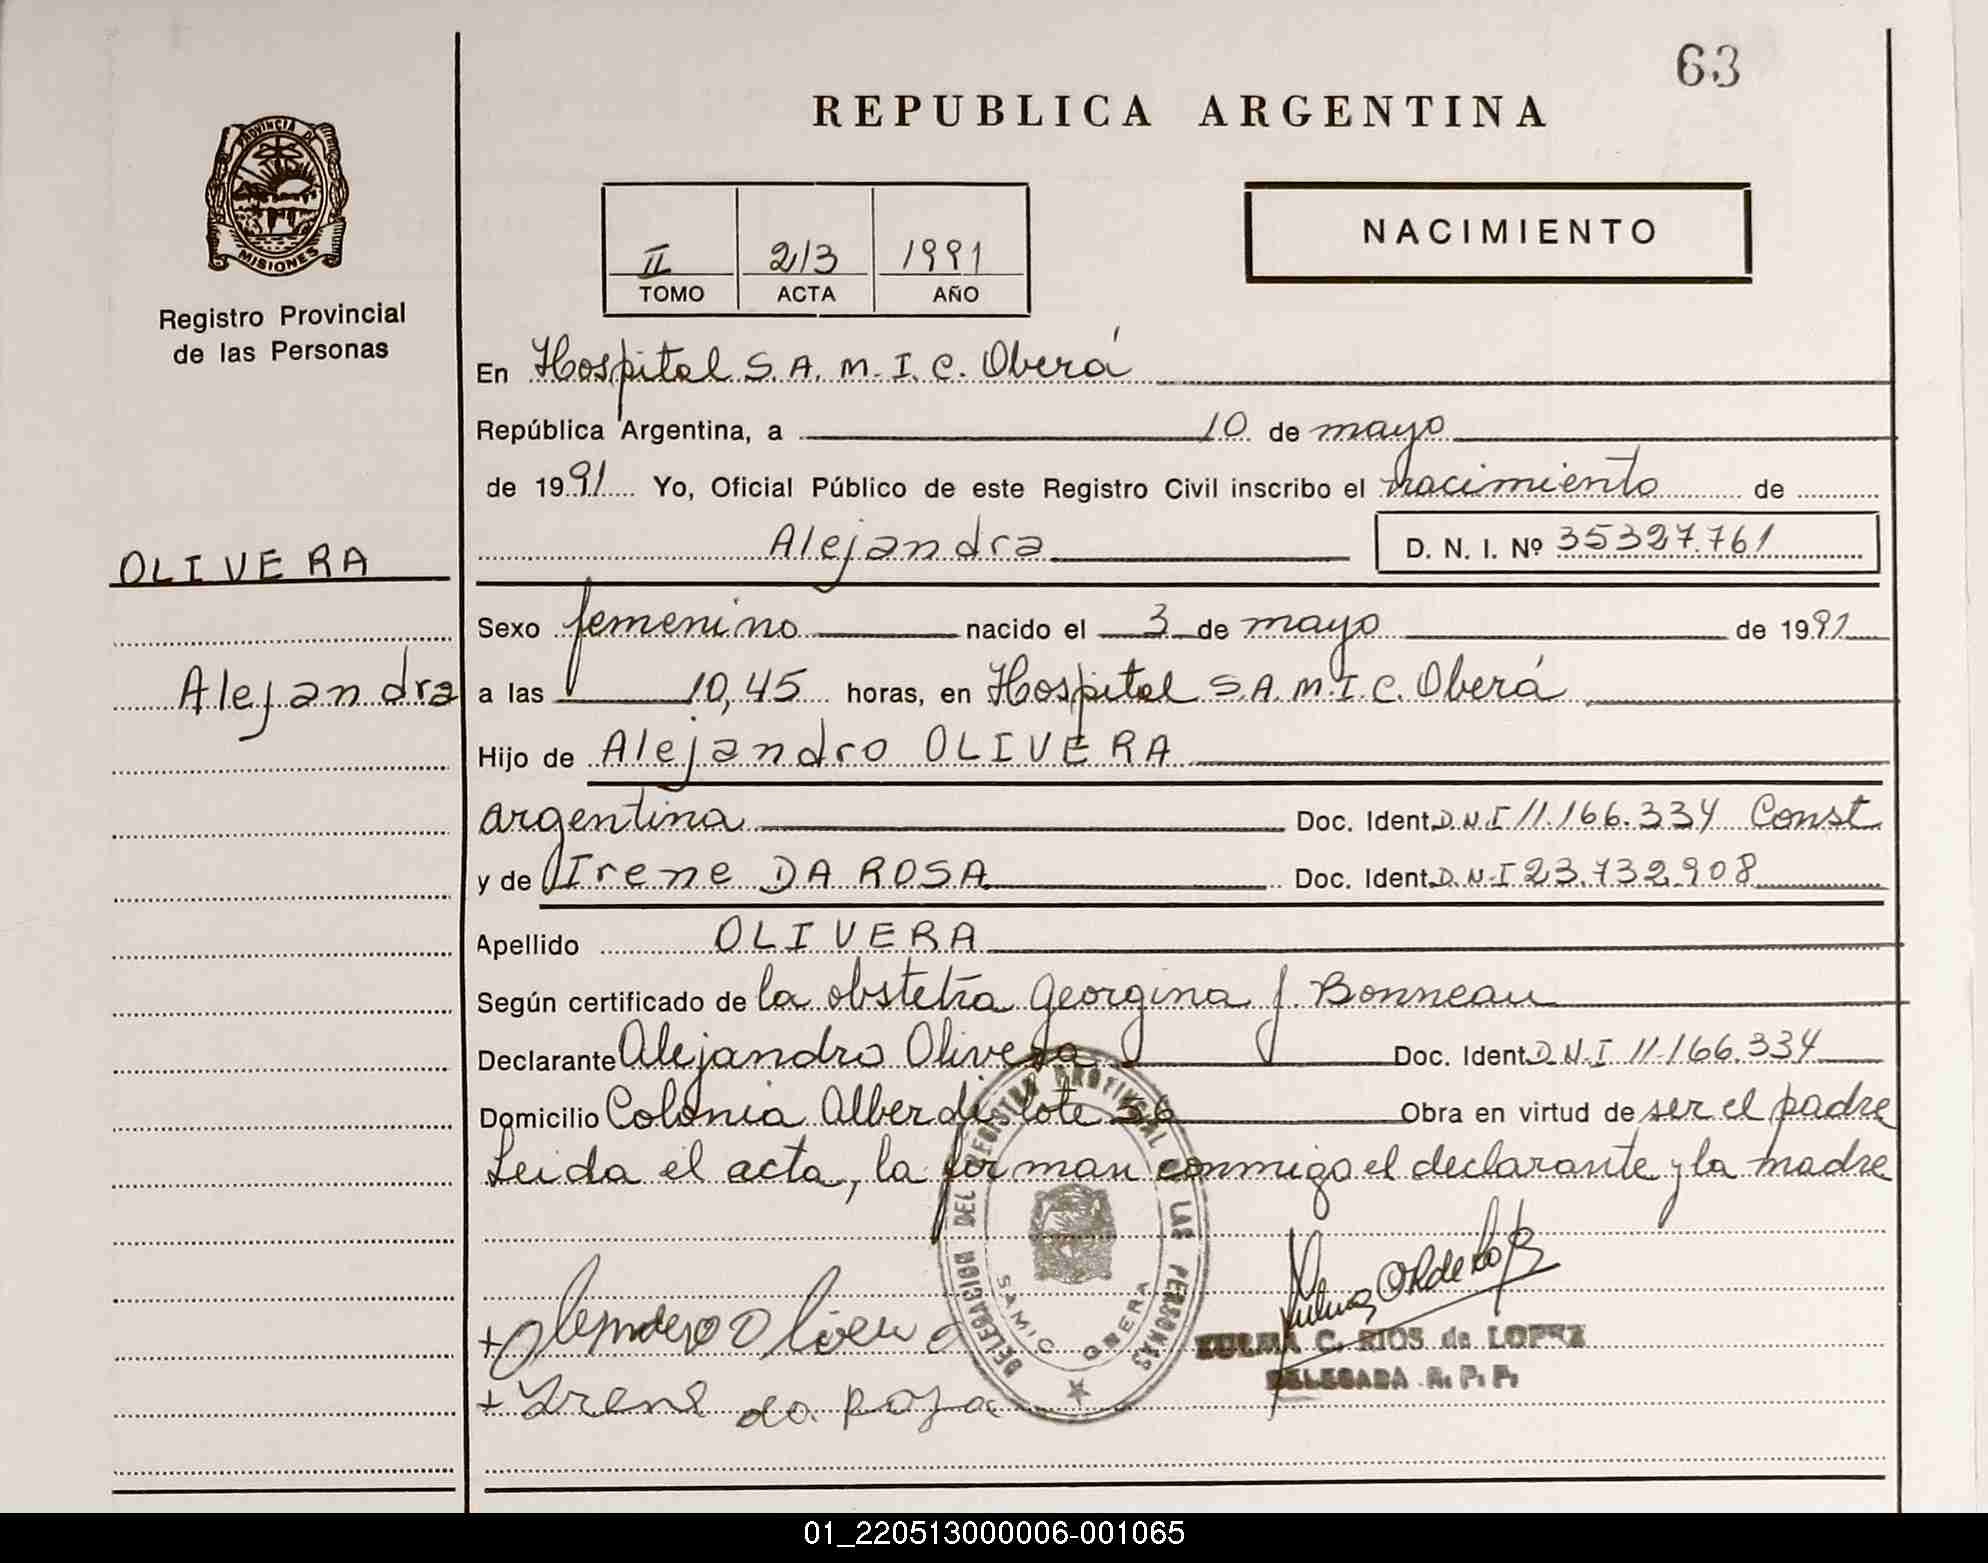 63
REPUBLICA ARGENTINA
PROVINCIA DE
MISIONES
Registro Provincial
de las Personas
NACIMIENTO
II 213 1991
TOMO ACTA AÑO
En Hospital S.A.M.I.C. Oberá
República Argentina, a 10 de mayo
de 1991 Yo, Oficial Público de este Registro Civil inscribo el nacimiento de
Alejandra D. N. I. Nº 35327.761
OLIVERA
Sexo femenino nacido el 3 de mayo de 1991
Alejandra
a las 10,45 horas, en Hospital S.A.M.I.C. Oberá
Hijo de Alejandro OLIVERA
argentina Doc. Ident. D.N.I 11.166.334 Const
y de Irene DA ROSA Doc. Ident. D.N.I 23.732.908
Apellido OLIVERA
Según certificado de la obstetra Georgina J. Bonneau
Declarante Alejandro Olivera Doc. Ident. D.N.I 11.166.334
Domicilio Colonia Alberdi lote 56 Obra en virtud de ser el padre
Leida el acta, la firman conmigo el declarante y la madre
DELEGACION DEL REGISTRO PROVINCIAL LAS PERSONAS
SAMIC OBERA
+ Alejandro Olivera
+ Irene da rosa
ZULMA C. RIOS de LOPEZ
DELEGADA R. P. P.
01_220513000006-001065